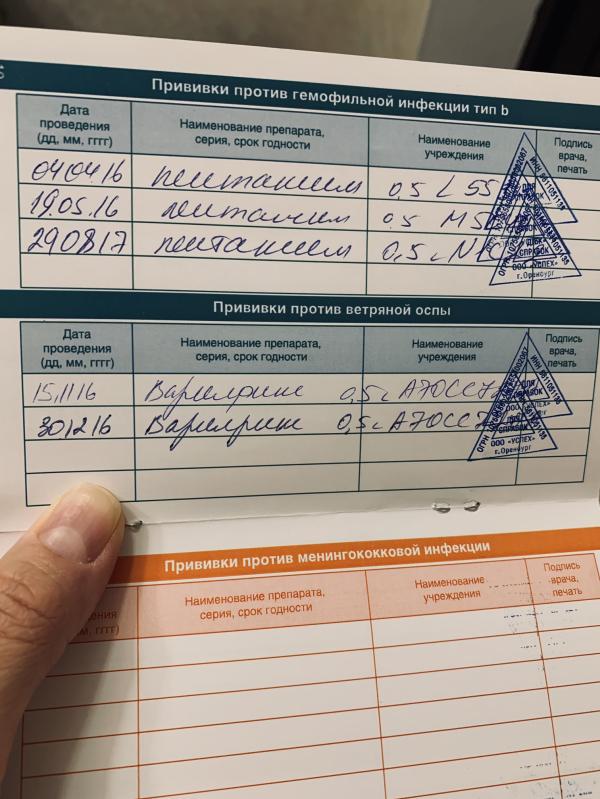 Прививки против гемофильной инфекции тип b
Дата проведения (дд, мм, гггг)
Наименование препарата, серия, срок годности
Наименование учреждения
Подпись врача, печать
04.04.16 пентаксим 0,5 L 55
19.05.16 пентаксим 0.5 M5
29.08.17 пентаксим 0,5 с N1
ООО «УСПЕХ»
г. Оренбург
Прививки против ветряной оспы
Дата проведения (дд, мм, гггг)
Наименование препарата, серия, срок годности
Наименование учреждения
Подпись врача, печать
15.11.16 Варилрикс 0,5 с A70CC7
30.12.16 Варилрикс 0,5 с A70CC7
ООО «УСПЕХ»
г. Оренбург
Прививки против менингококковой инфекции
мм, гггг)
Наименование препарата, серия, срок годности
Наименование учреждения
Подпись врача, печать